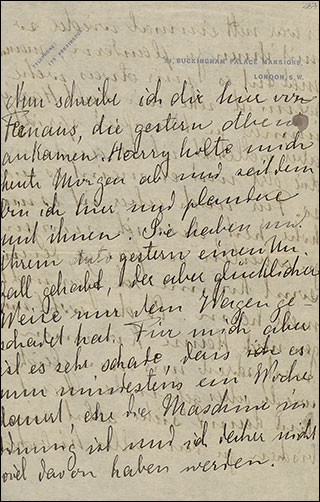 TELEPHONE
175 VICTORIA
29, BUCKINGHAM PALACE MANSIONS
LONDON, S.W.
Nun schreibe ich dir hier von
die gestern Abend
ankamen. Harry holte mich
heute Morgen ab und seitdem
bin ich hier und plaudere
mit ihnen. Sie haben mit
ihrem Auto gestern einen Un
fall gehabt, der aber glücklicher
Weise nur dem Wagen ge-
schadet hat. Für mich aber
ist es sehr schade, dass es
nun mindestens ein Woche
dauert ehe die Maschine in
Ordnung ist und ich daher nicht
viel davon haben werden.